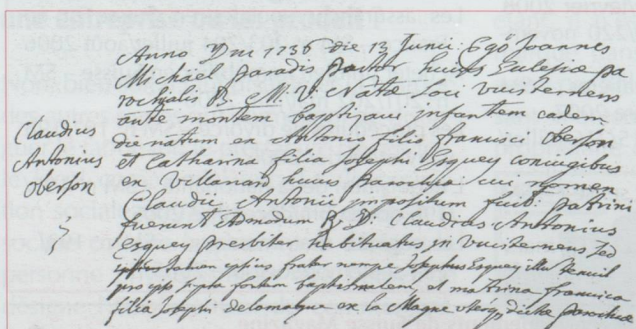 Anno Dni 1736 die 13 Junii: Ego Joannes
Michäel Paradis Pastor huius Eulesiæ pa
rochialis B. M. V. Natæ Loci vuisternens
ante montem baptizavi infantem eadem
die natum ex Antonio filio francisci oberson
et Catharina filia Josephi Esquey coniugibus
ex Villariard huius Parochiæ cui nomen
Claudii Antonii impositum fuit: patrini
fuerunt Adm R D: Claudius Antonius
Esquey Presbiter habituatus in vuisternens sed
tamen ipsius frater nempe Josephus Esquey illum tenuit
pro ipso supra fontem baptismalem, et matrina francisca
filia Josephi delamagne ex la Magne dictæ Parochiæ
Claudius
Antonius
oberson